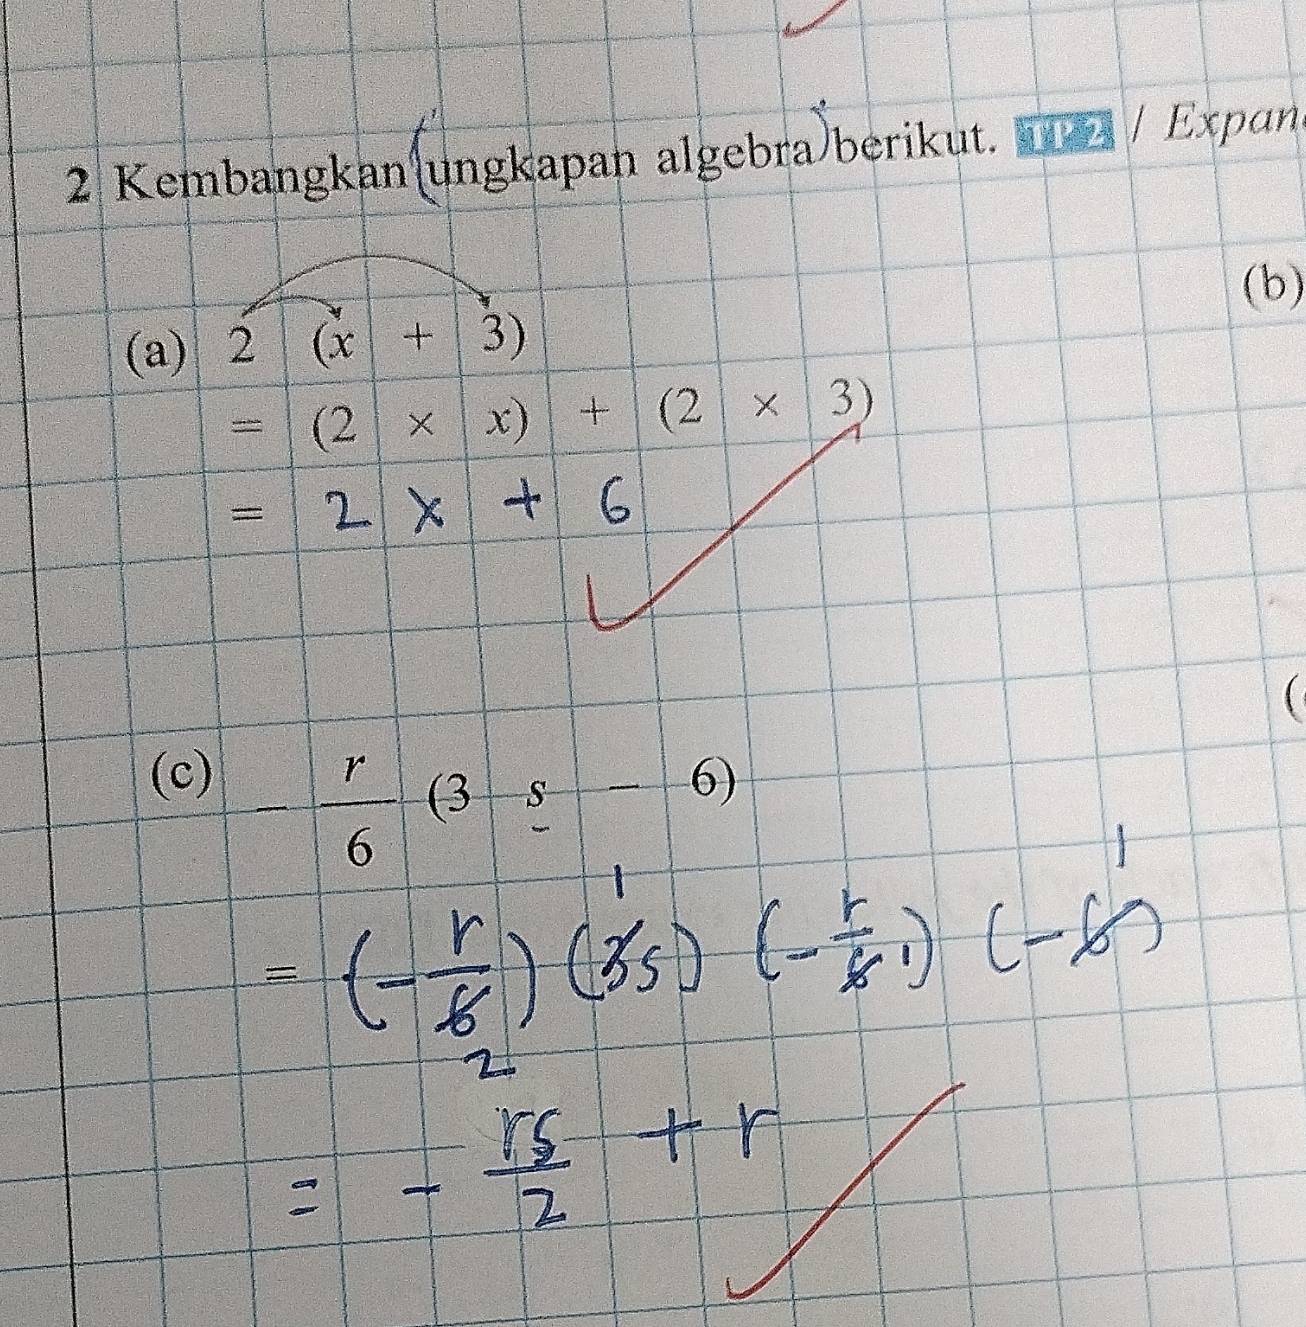 2 Kembangkan (ungkapan algebra) berikut. TP 2 / Expan
(b)
(a) 2 (x + 3)
= (2 × x) + (2 × 3)
= 2x + 6
(c) - r/6 (3s - 6)
= (-r/6 2) (3 1 s) (-r/6 1) (-6 1)
= - rs/2 + r